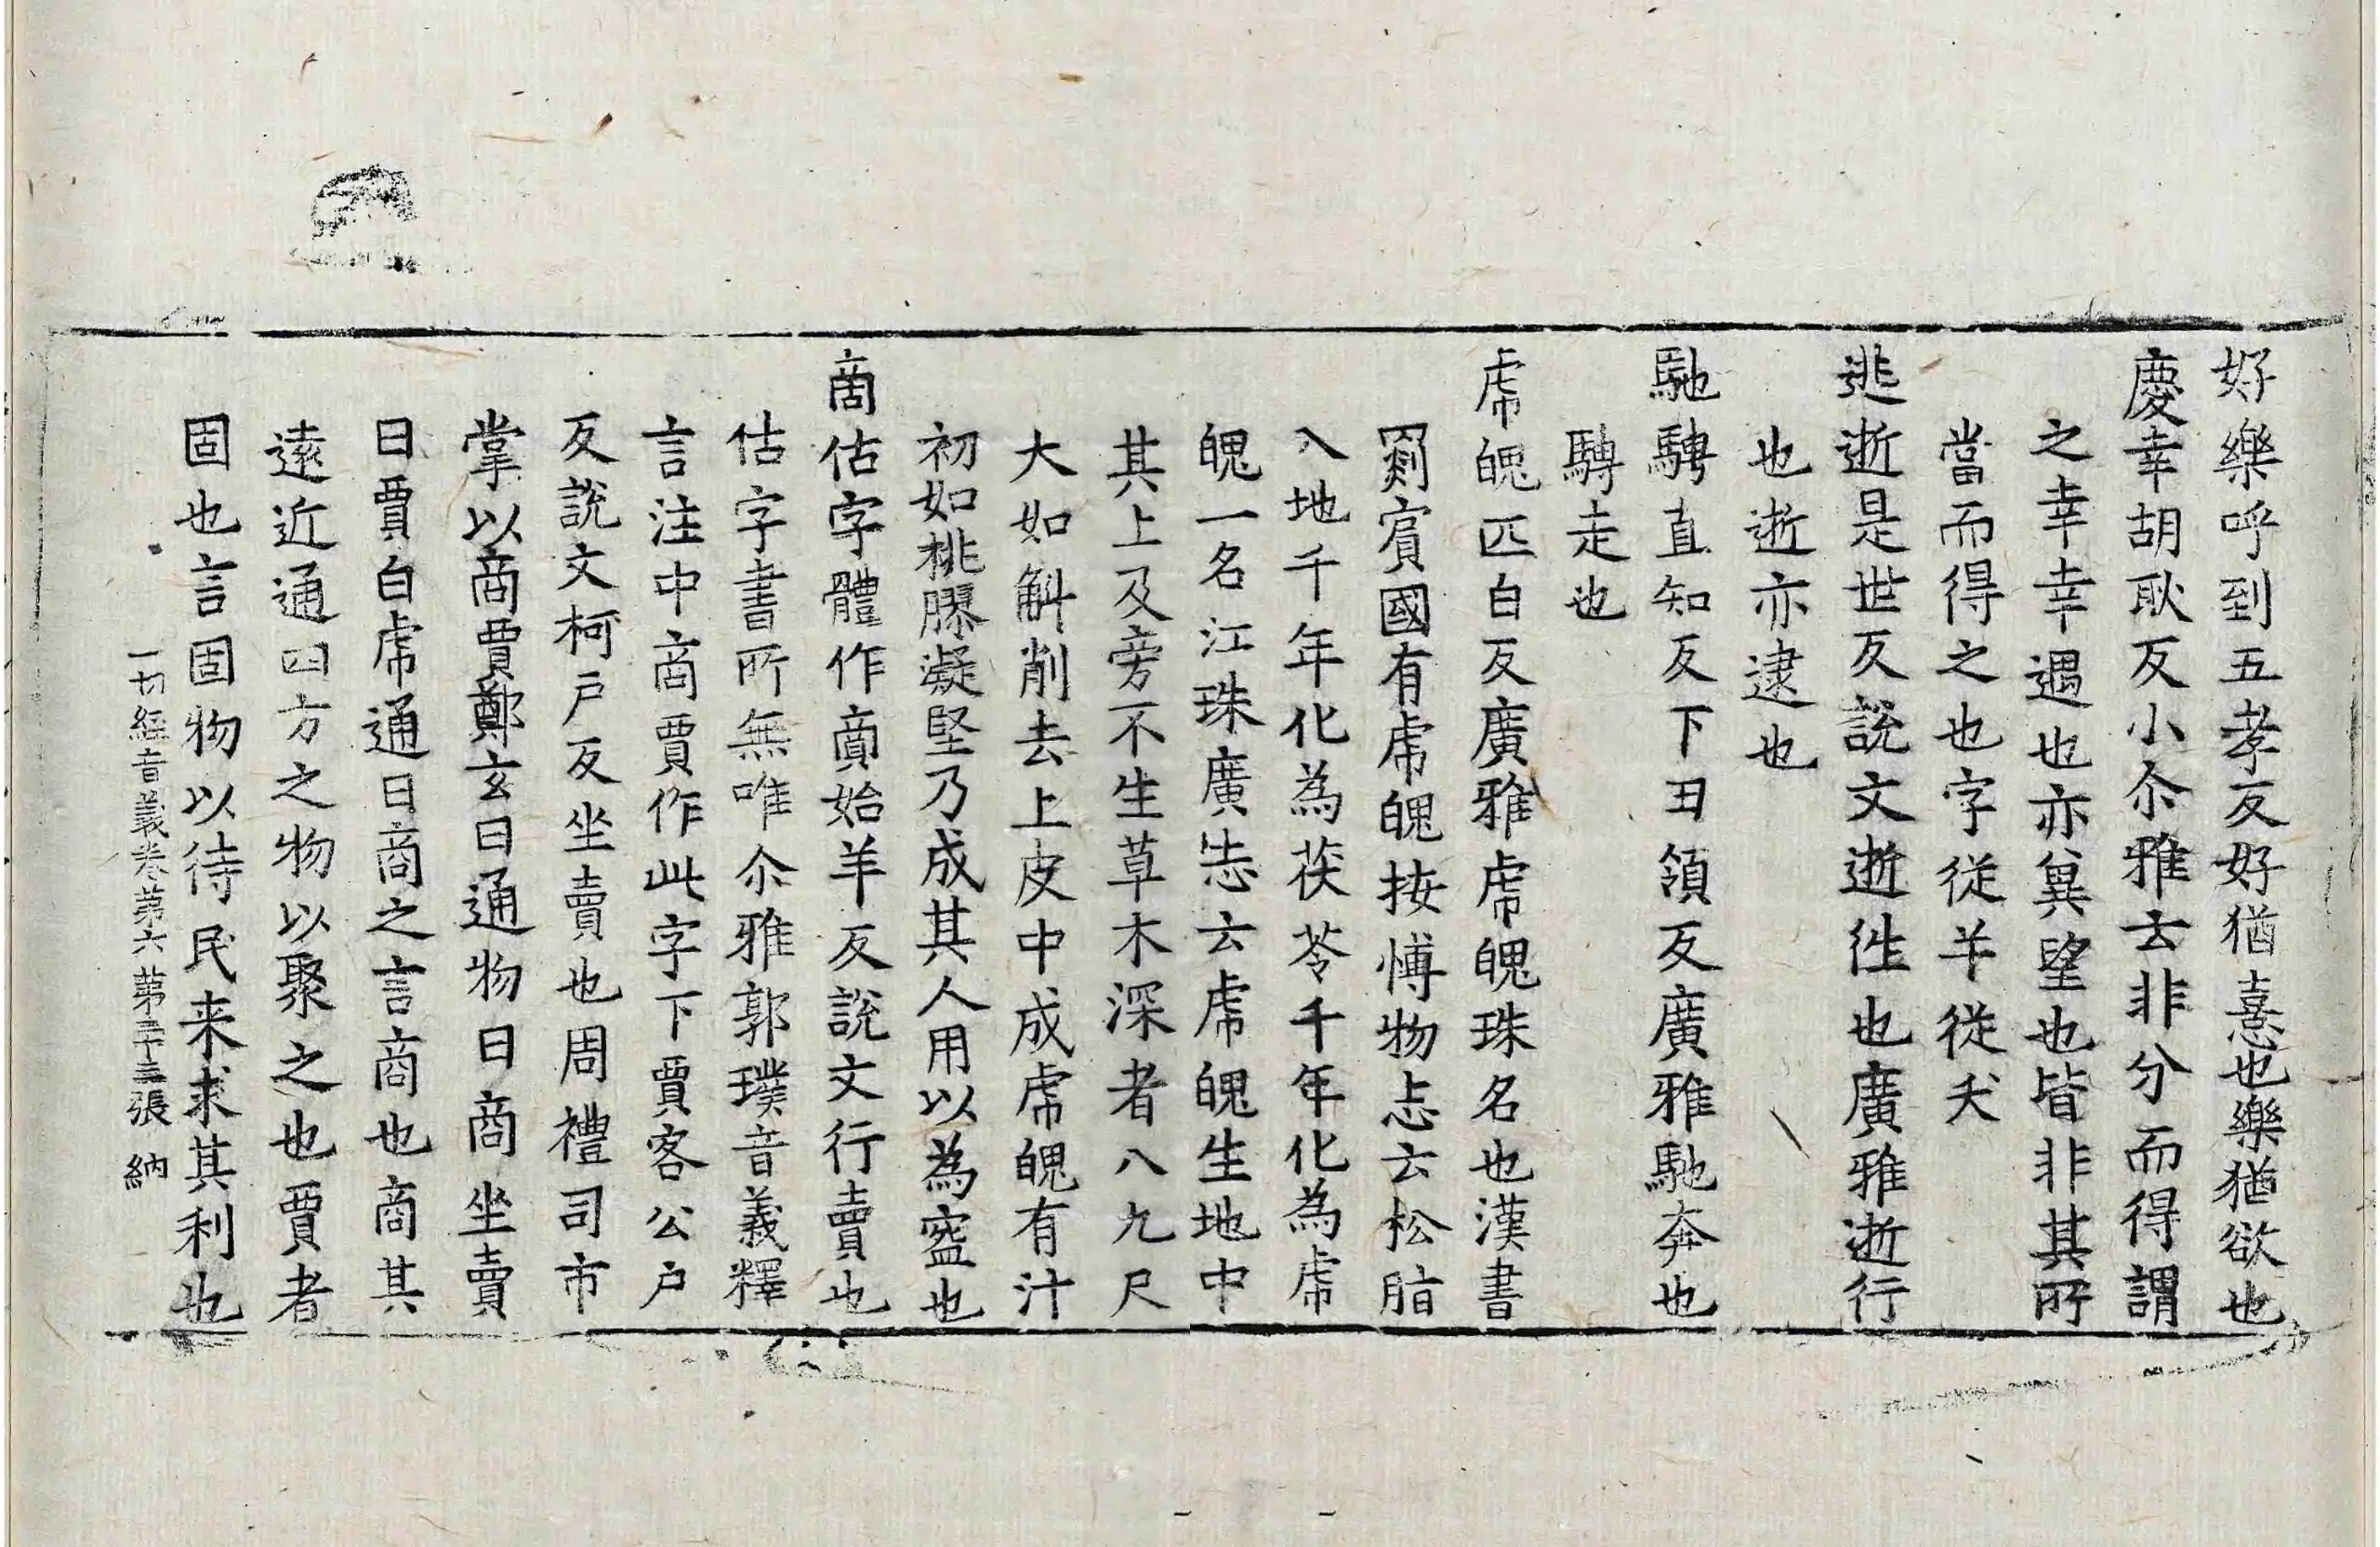 好樂呼到五孝反好猶憙也樂猶欲也
慶幸胡耿反小尒雅云非分而得謂
之幸幸遇也亦兾望也皆非其所
當而得之也字従羊従犬
逃逝是世反說文逝徃也廣雅逝行
也逝亦逮也
馳騁直知反下丑領反廣雅馳奔也
騁走也
虎魄匹白反廣雅虎魄珠名也漢書
罽賔國有虎魄按愽物志云松脂
入地千年化為茯苓千年化為虎
魄一名江珠廣志云虎魄生地中
其上及旁不生草木深者八九尺
大如斛削去上皮中成虎魄有汁
初如桃膠凝堅乃成其人用以為盌也
啇估字體作𧶜始羊反說文行賣也
估字書所無唯尒雅郭璞音義釋
言注中商賈作此字下賈客公户
反說文柯户反坐賣也周禮司市
掌以商賈鄭玄曰通物曰商坐賣
曰賈白虎通曰商之言商也商其
逺近通四方之物以聚之也賈者
固也言固物以待民来求其利也
一切經音義卷第六 第二十三張 納